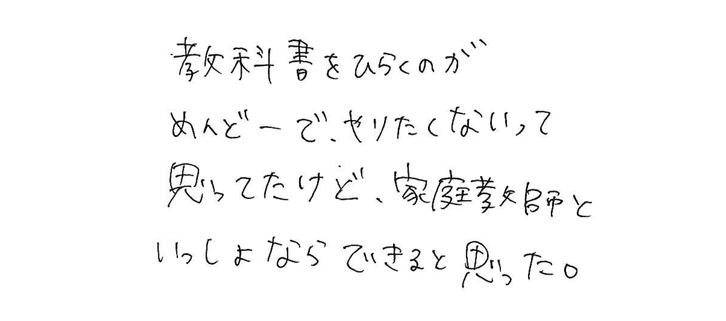 教科書をひらくのが
めんどーで、やりたくないって
思ってたけど、家庭教師と
いっしょならできると思った。